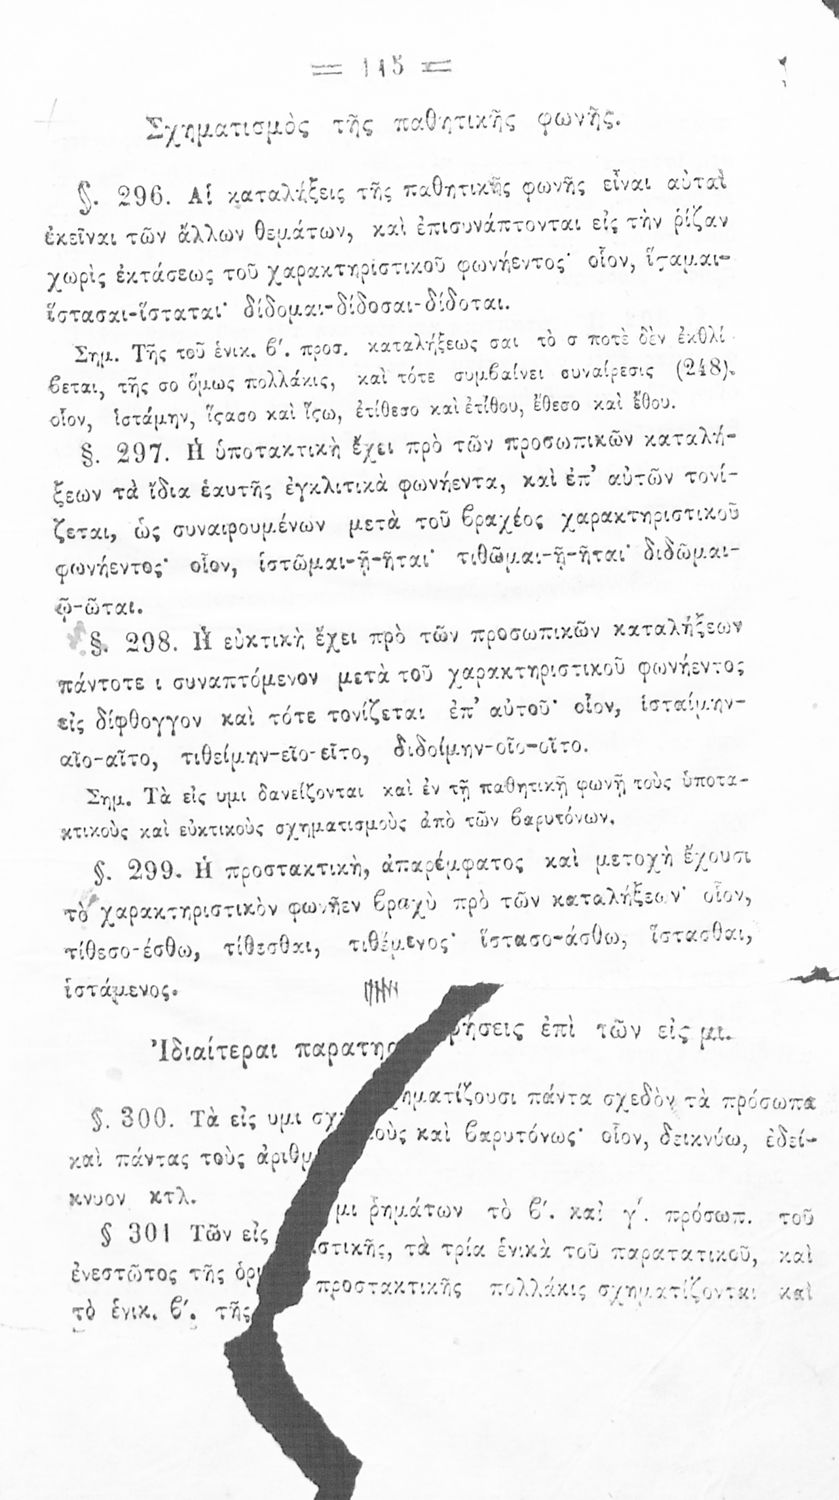 = 115 =
Σχηματισμὸς τῆς παθητικῆς φωνῆς.
§. 296. Αἱ καταλήξεις τῆς παθητικῆς φωνῆς εἶναι αὐταὶ
ἐκεῖναι τῶν ἄλλων θεμάτων, καὶ ἐπισυνάπτονται εἰς τὴν ῥίζαν
χωρὶς ἐκτάσεως τοῦ χαρακτηριστικοῦ φωνήεντος· οἷον, ἵϛαμαι-
ἵστασαι-ἵσταται· δίδομαι-δίδοσαι-δίδοται.
Σημ. Τῆς τοῦ ἑνικ. β΄. προσ. καταλήξεως σαι τὸ σ ποτὲ δὲν ἐκθλί
βεται, τῆς σο ὅμως πολλάκις, καὶ τότε συμβαίνει συναίρεσις (248).
οἷον, ἱστάμην, ἵϛασο καὶ ἵϛω, ἐτίθεσο καὶ ἐτίθου, ἔθεσο καὶ ἔθου.
§. 297. Ἡ ὑποτακτικὴ ἔχει πρὸ τῶν προσωπικῶν καταλή-
ξεων τὰ ἴδια ἑαυτῆς ἐγκλιτικὰ φωνήεντα, καὶ ἐπ' αὐτῶν τονί-
ζεται, ὡς συναιρουμένων μετὰ τοῦ βραχέος χαρακτηριστικοῦ
φωνήεντος· οἷον, ἱστῶμαι-ῇ-ῆται· τιθῶμαι-ῇ-ῆται· διδῶμαι-
ῷ-ῶται.
§. 298. Ἡ εὐκτικὴ ἔχει πρὸ τῶν προσωπικῶν καταλήξεων
πάντοτε ι συναπτόμενον μετὰ τοῦ χαρακτηριστικοῦ φωνήεντος
εἰς δίφθογγον καὶ τότε τονίζεται ἐπ' αὐτοῦ· οἷον, ἱσταίμην-
αῖο-αῖτο, τιθείμην-εῖο-εῖτο, διδοίμην-οῖο-οῖτο.
Σημ. Τὰ εἰς υμι δανείζονται καὶ ἐν τῇ παθητικῇ φωνῇ τοὺς ὑποτα-
κτικοὺς καὶ εὐκτικοὺς σχηματισμοὺς ἀπὸ τῶν βαρυτόνων.
§. 299. Ἡ προστακτικὴ, ἀπαρέμφατος καὶ μετοχὴ ἔχουσι
τὸ χαρακτηριστικὸν φωνῆεν βραχὺ πρὸ τῶν καταλήξεων· οἷον,
τίθεσο-έσθω, τίθεσθαι, τιθέμενος· ἵστασο-άσθω, ἵστασθαι,
ἱστάμενος.
Ἰδιαίτεραι παρατηρήσεις ἐπὶ τῶν εἰς μι.
§. 300. Τὰ εἰς υμι σχηματίζουσι πάντα σχεδὸν τὰ πρόσωπα
καὶ πάντας τοὺς ἀριθμοὺς καὶ βαρυτόνως· οἷον, δεικνύω, ἐδεί-
κνυον κτλ.
§ 301 Τῶν εἰς μι ῥημάτων τὸ β΄. καὶ γ΄. πρόσωπ. τοῦ
ἐνεστῶτος τῆς ὁριστικῆς, τὰ τρία ἑνικὰ τοῦ παρατατικοῦ, καὶ
τὸ ἑνικ. β΄. τῆς προστακτικῆς πολλάκις σχηματίζονται καὶ